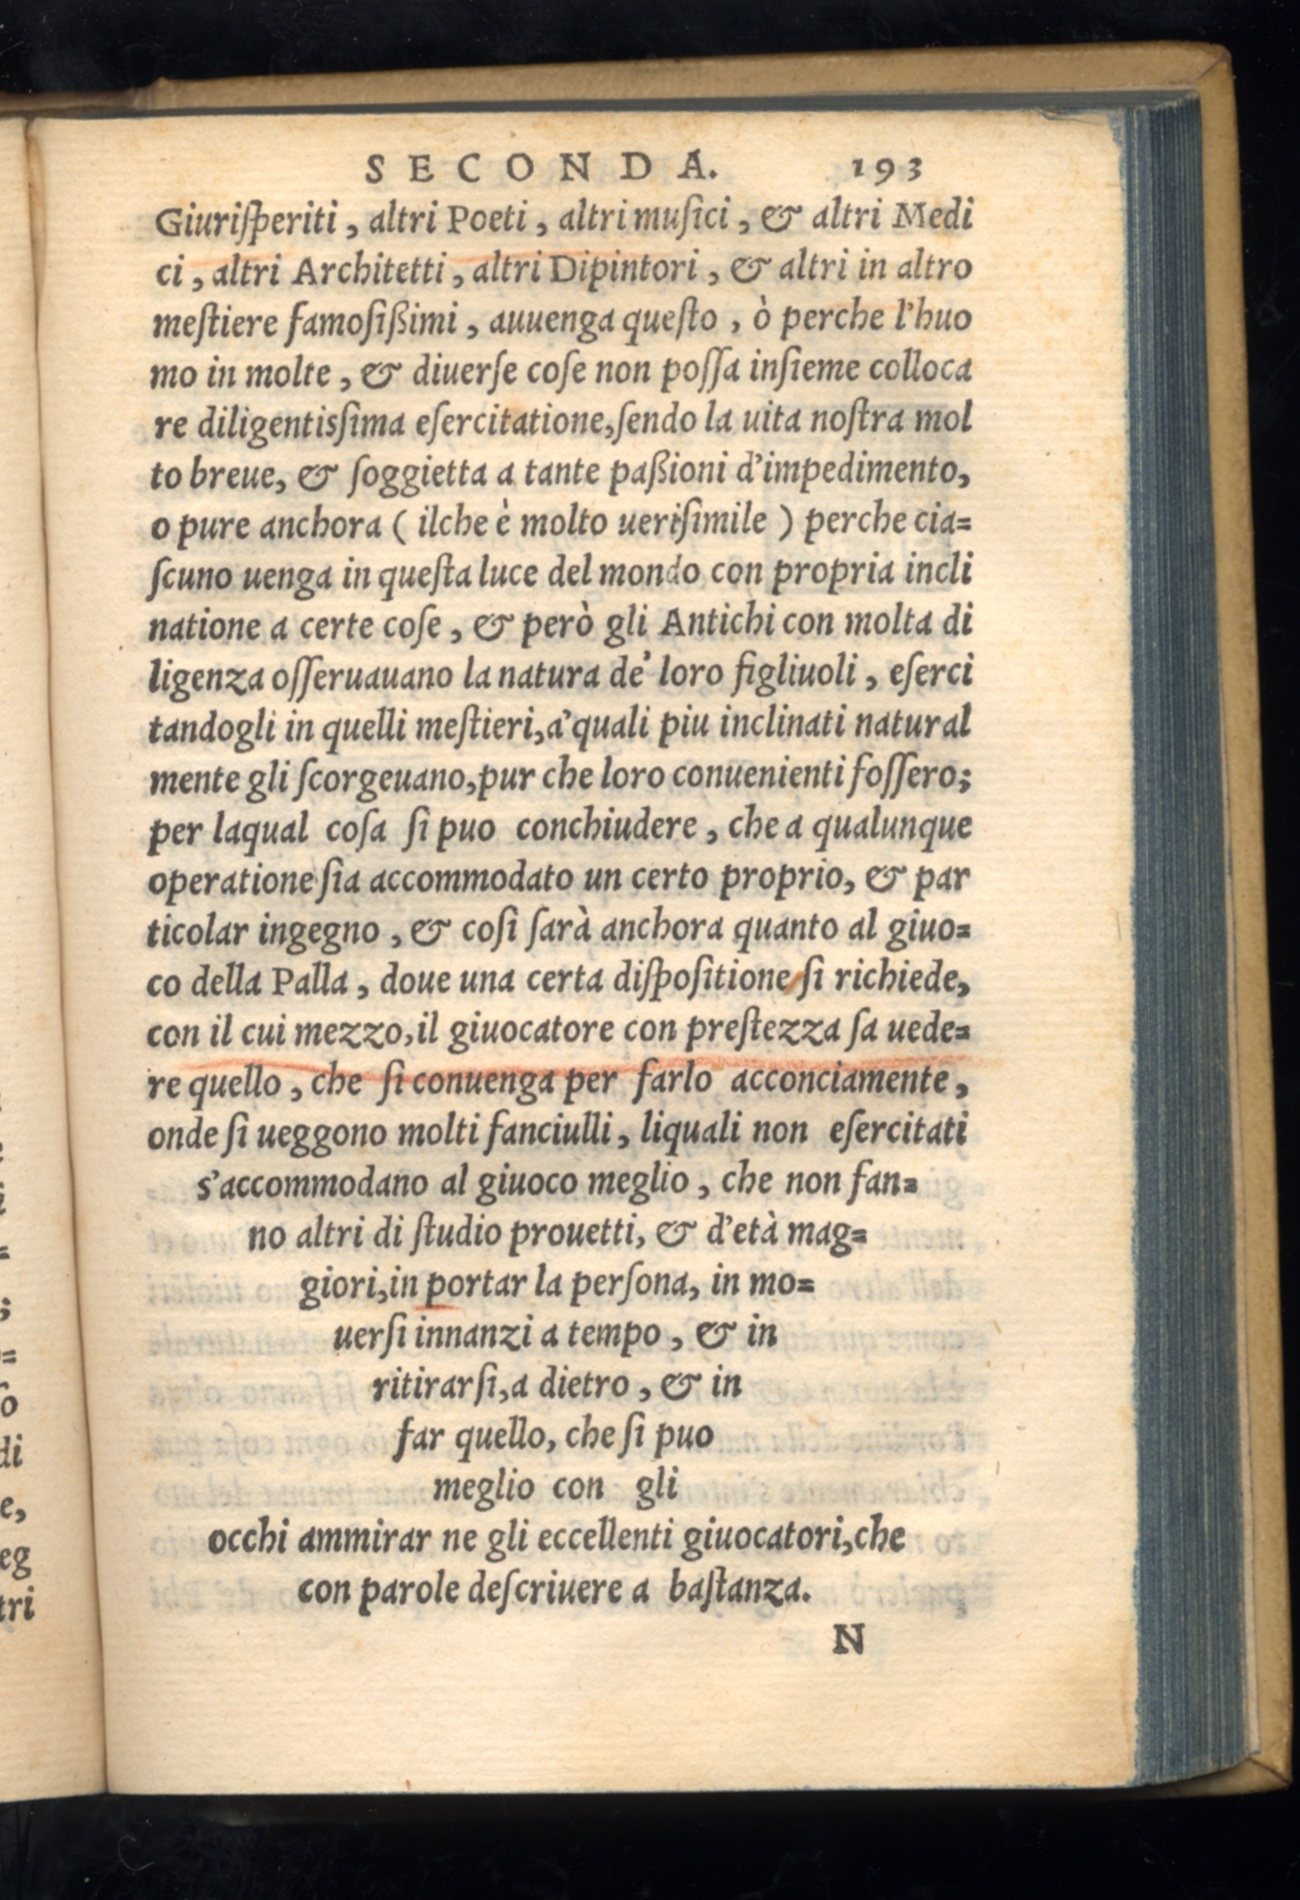 SECONDA. 193
Giuriſperiti, altri Poeti, altri muſici, & altri Medi
ci, altri Architetti, altri Dipintori, & altri in altro
meſtiere famoſißimi, auuenga queſto, ò perche l'huo
mo in molte, & diuerſe coſe non poſſa inſieme colloca
re diligentisſima eſercitatione, ſendo la uita noſtra mol
to breue, & ſoggietta a tante paßioni d'impedimento,
o pure anchora (ilche è molto ueriſimile) perche cia=
ſcuno uenga in queſta luce del mondo con propria incli
natione a certe coſe, & però gli Antichi con molta di
ligenza oſſeruauano la natura de' loro figliuoli, eſerci
tandogli in quelli meſtieri, a' quali piu inclinati natural
mente gli ſcorgeuano, pur che loro conuenienti foſſero;
per laqual coſa ſi puo conchiudere, che a qualunque
operatione ſia accommodato un certo proprio, & par
ticolar ingegno, & coſi ſarà anchora quanto al giuo=
co della Palla, doue una certa diſpoſitione ſi richiede,
con il cui mezzo, il giuocatore con preſtezza ſa uede=
re quello, che ſi conuenga per farlo acconciamente,
onde ſi ueggono molti fanciulli, liquali non eſercitati
s'accommodano al giuoco meglio, che non fan=
no altri di ſtudio prouetti, & d'età mag=
giori, in portar la perſona, in mo=
uerſi innanzi a tempo, & in
ritirarſi, a dietro, & in
far quello, che ſi puo
meglio con gli
occhi ammirar ne gli eccellenti giuocatori, che
con parole deſcriuere a baſtanza.
N
;
=
ſo
di
e,
eg
tri